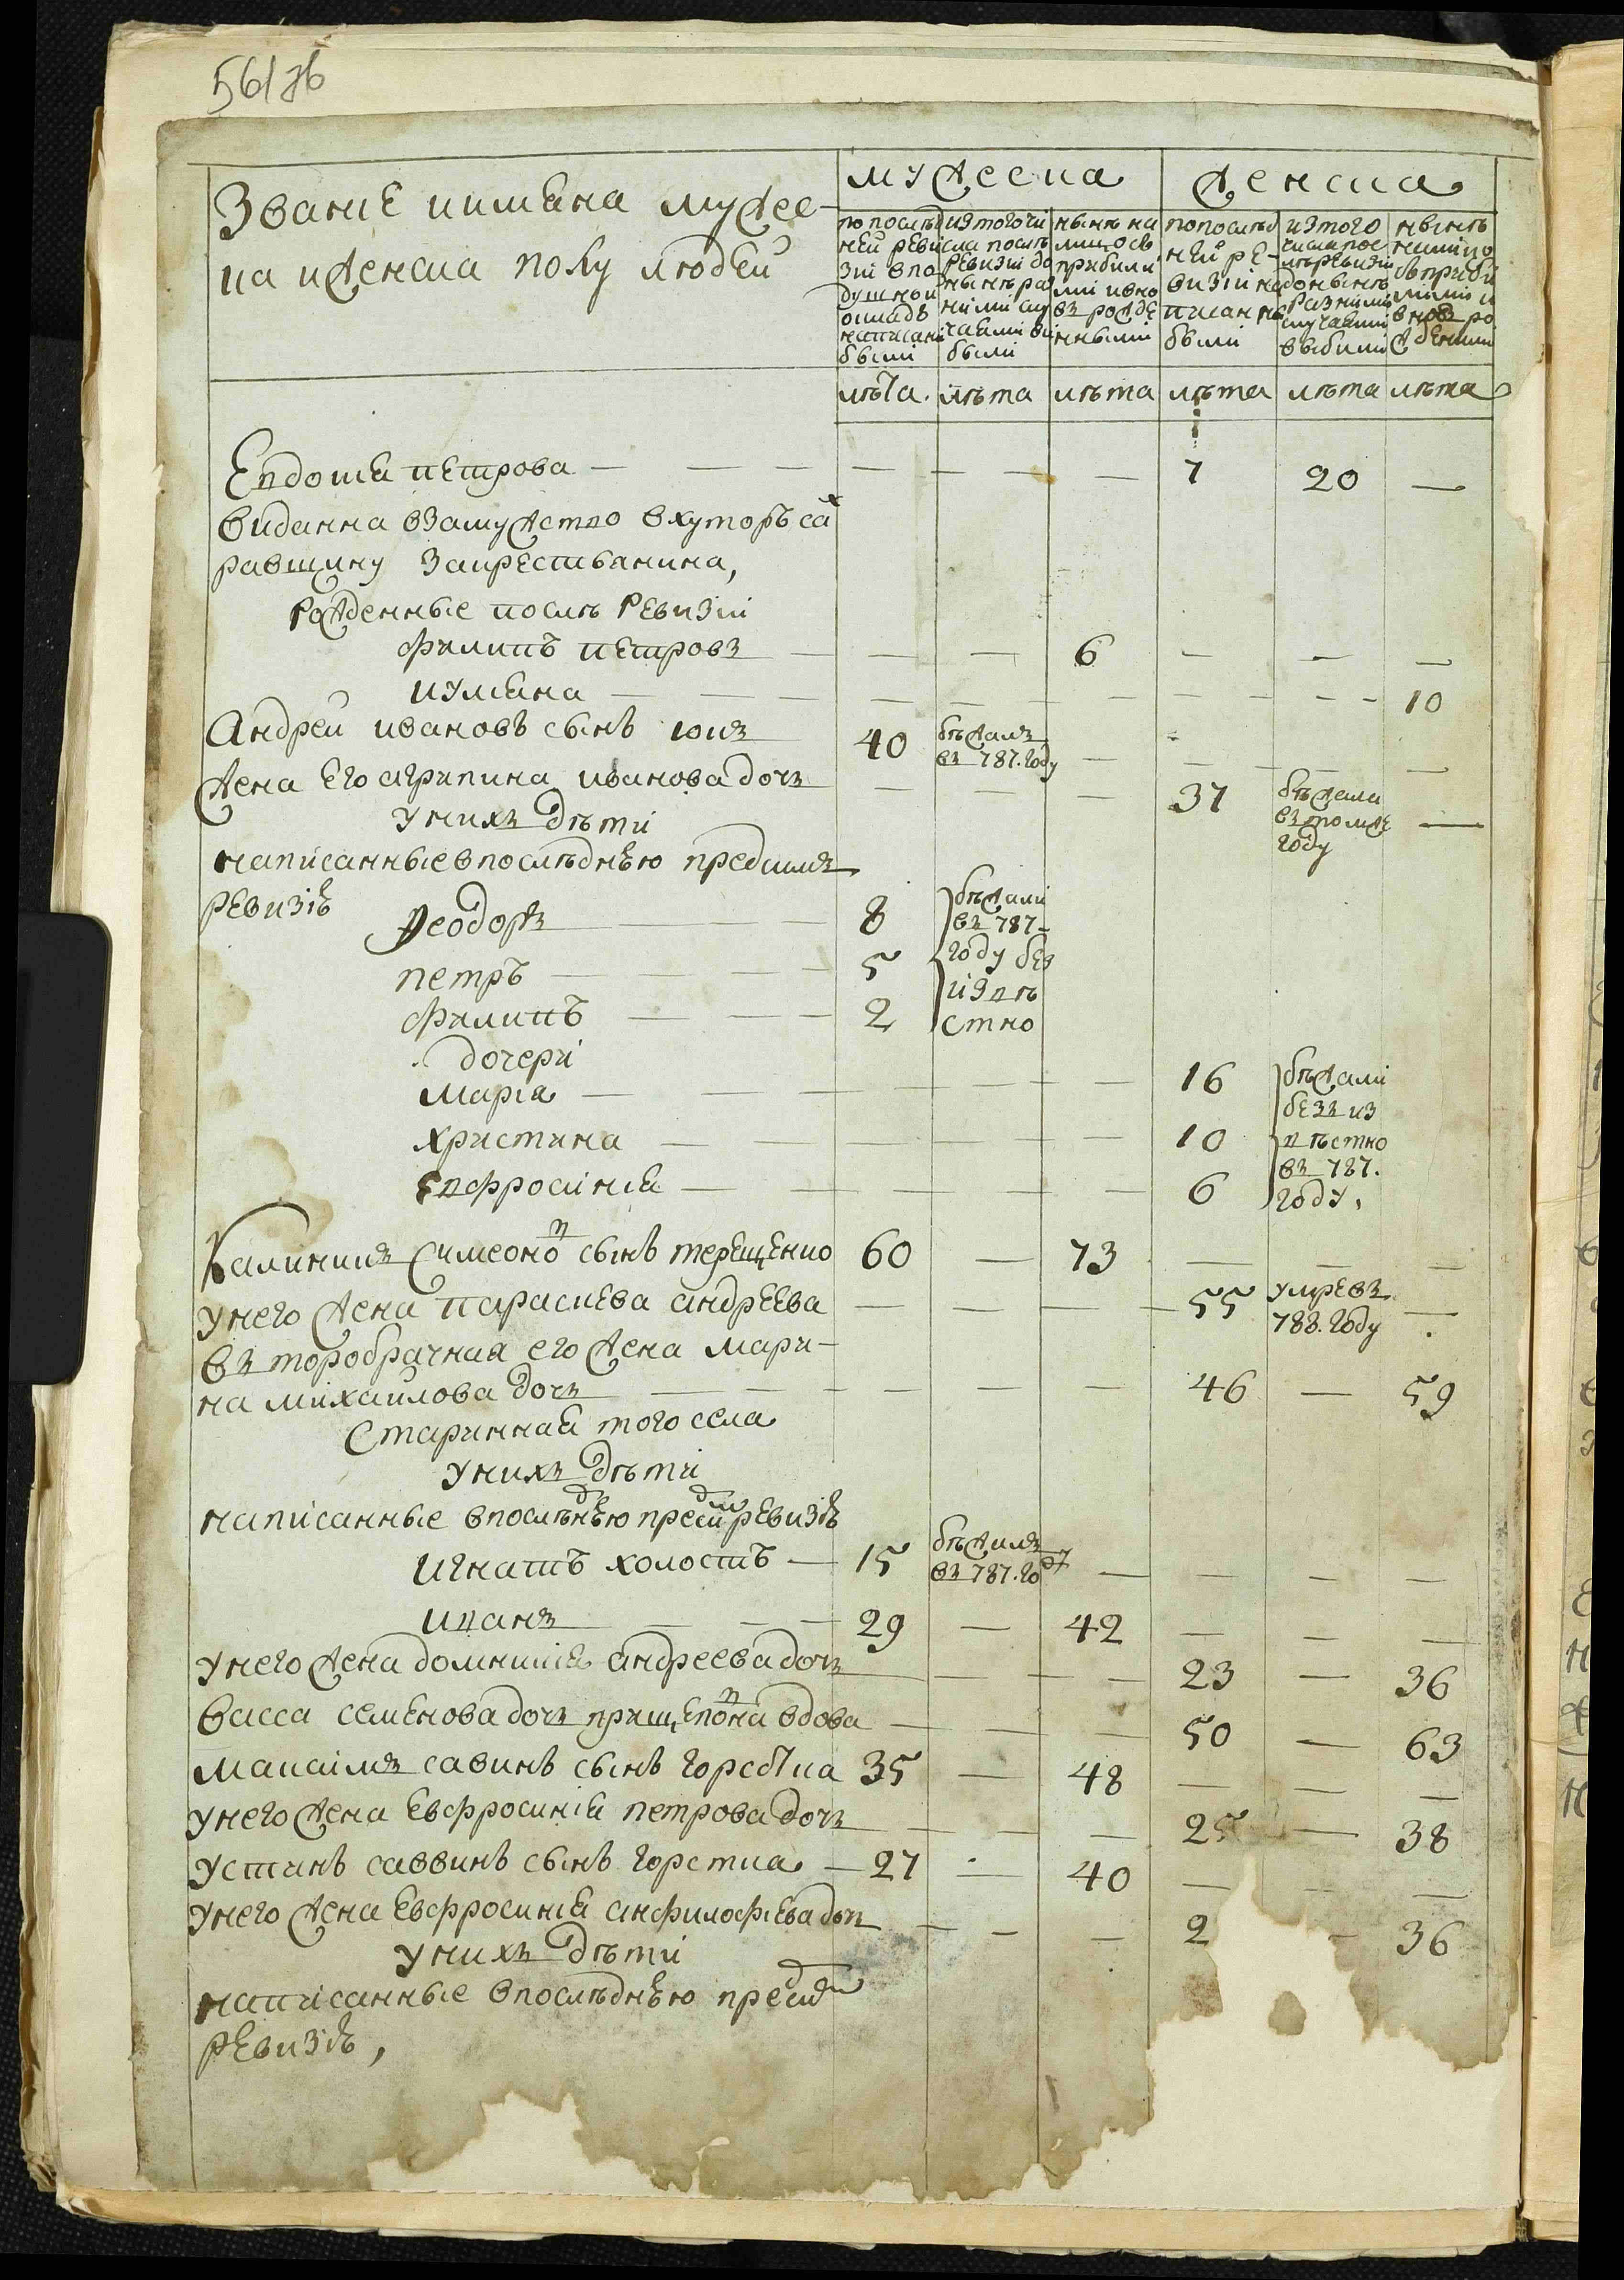 56/76
Званіе и имѣна мужес-
ка и женска полу людей
мужеска
женска
по послѣд
ней реви
зіи в по
душной
окладъ
написани
были
из того чи
сла послѣ
ревизіи до
нынѣ ра
зними слу
чаями вы
были
нынѣ на
лицо съ
прибили
ми и вно
въ рожде
нными
по послѣд
ней ре-
визіи на
писанны
были
из того
числа пос
лѣ ревизіи
до нынѣ
разними
случаями
выбили
нынѣ
налицо
съ приби
лими и
вновъ ро
жденими
лѣта лѣта лѣта лѣта лѣта лѣта
Евдокія петрова — — — — — — — 7 20 —
видання взамужство вхуторъ са
равщину За крестьянина,
Рожденные послѣ Ревизіи
Филипъ петровъ — — — 6 — — —
иуліяна — — — — — — — — 10
Андрей ивановъ сынъ юкъ 40 бѣжалъ въ 787. году — — — —
Жена Его агрипина иванова дочъ — — — 37 бѣжала въ томже году —
у нихъ дѣти
написанные в послѣднѣю предъ симъ
ревизіѣ Ѳеодоръ — 8 бѣжали
въ 787-
петръ — 5 году без
извѣ
Филипъ — 2 стно
дочери
марія — — — — — — 16 бѣжали
безъ из
христина — — — — — 10 вѣстно
въ 787.
Евфросінія — — — — — 6 году.
Калиникъ Симеоновъ сынъ терещенко 60 — 73 — — —
у него жена параскева андреева — — — — 55 умре въ 788. году —
въторобрачная его жена мари-
на михайлова дочъ — — — — — — 46 — 59
Старинная того села
у нихъ дѣти
написанные в послѣднѣю предсим ревизіѣ
Игнатъ холостъ — 15 бѣжалъ въ 787. году — — — —
иванъ — — — 29 — 42 — — —
у него жена домникія андреева дочъ — — — 23 — 36
васса семенова дочъ прищеповна вдова — — — 50 — 63
максімъ савинъ сынъ горобтка 35 — 48 — — —
у него жена Евфросинія петрова дочъ — — — 25 — 38
устинъ саввинъ сынъ горстка — 27 — 40 — — —
у него жена Евфросинія анфилофіева дочъ — — — 2 — 36
у нихъ дѣти
написанные в послѣднѣю предсим
ревизіѣ,